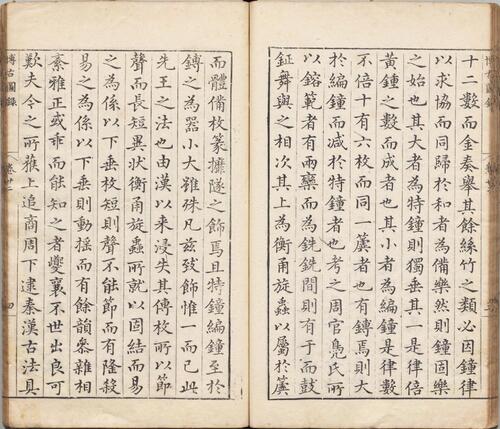 十二數而金奏舉其餘絲竹之類必因鐘律
以求協而同歸於和者為備樂然則鐘固樂
之始也其大者為特鐘則獨垂其一是律倍
黃鍾之數而成者也其小者為編鐘是律數
不倍十有六枚而同一簴者也有鎛焉則大
於編鐘而減於特鐘者也考之周官鳧氏所
以鎔範者有兩欒而為銑銑間則有于而鼓
鉦舞與之相次其上為衡甬旋蟲以屬於簴
而體備枚篆攠隧之飾焉且特鐘編鐘至於
鎛之為器小大雖殊凡兹致飾惟一而已此
先王之法也由漢以来浸失其傳枚所以節
聲而長短異狀衡甬旋蟲所就以固結而易
之為係以下垂枚短則聲不能節而有隆殺
易之為係以下垂則動揺而有餘韻叅雜相
紊雅正或乖而能知之者夔襄不世出良可
歎夫今之所蓰上追商周下逮秦漢古法具
博古圖録
卷廿二
四